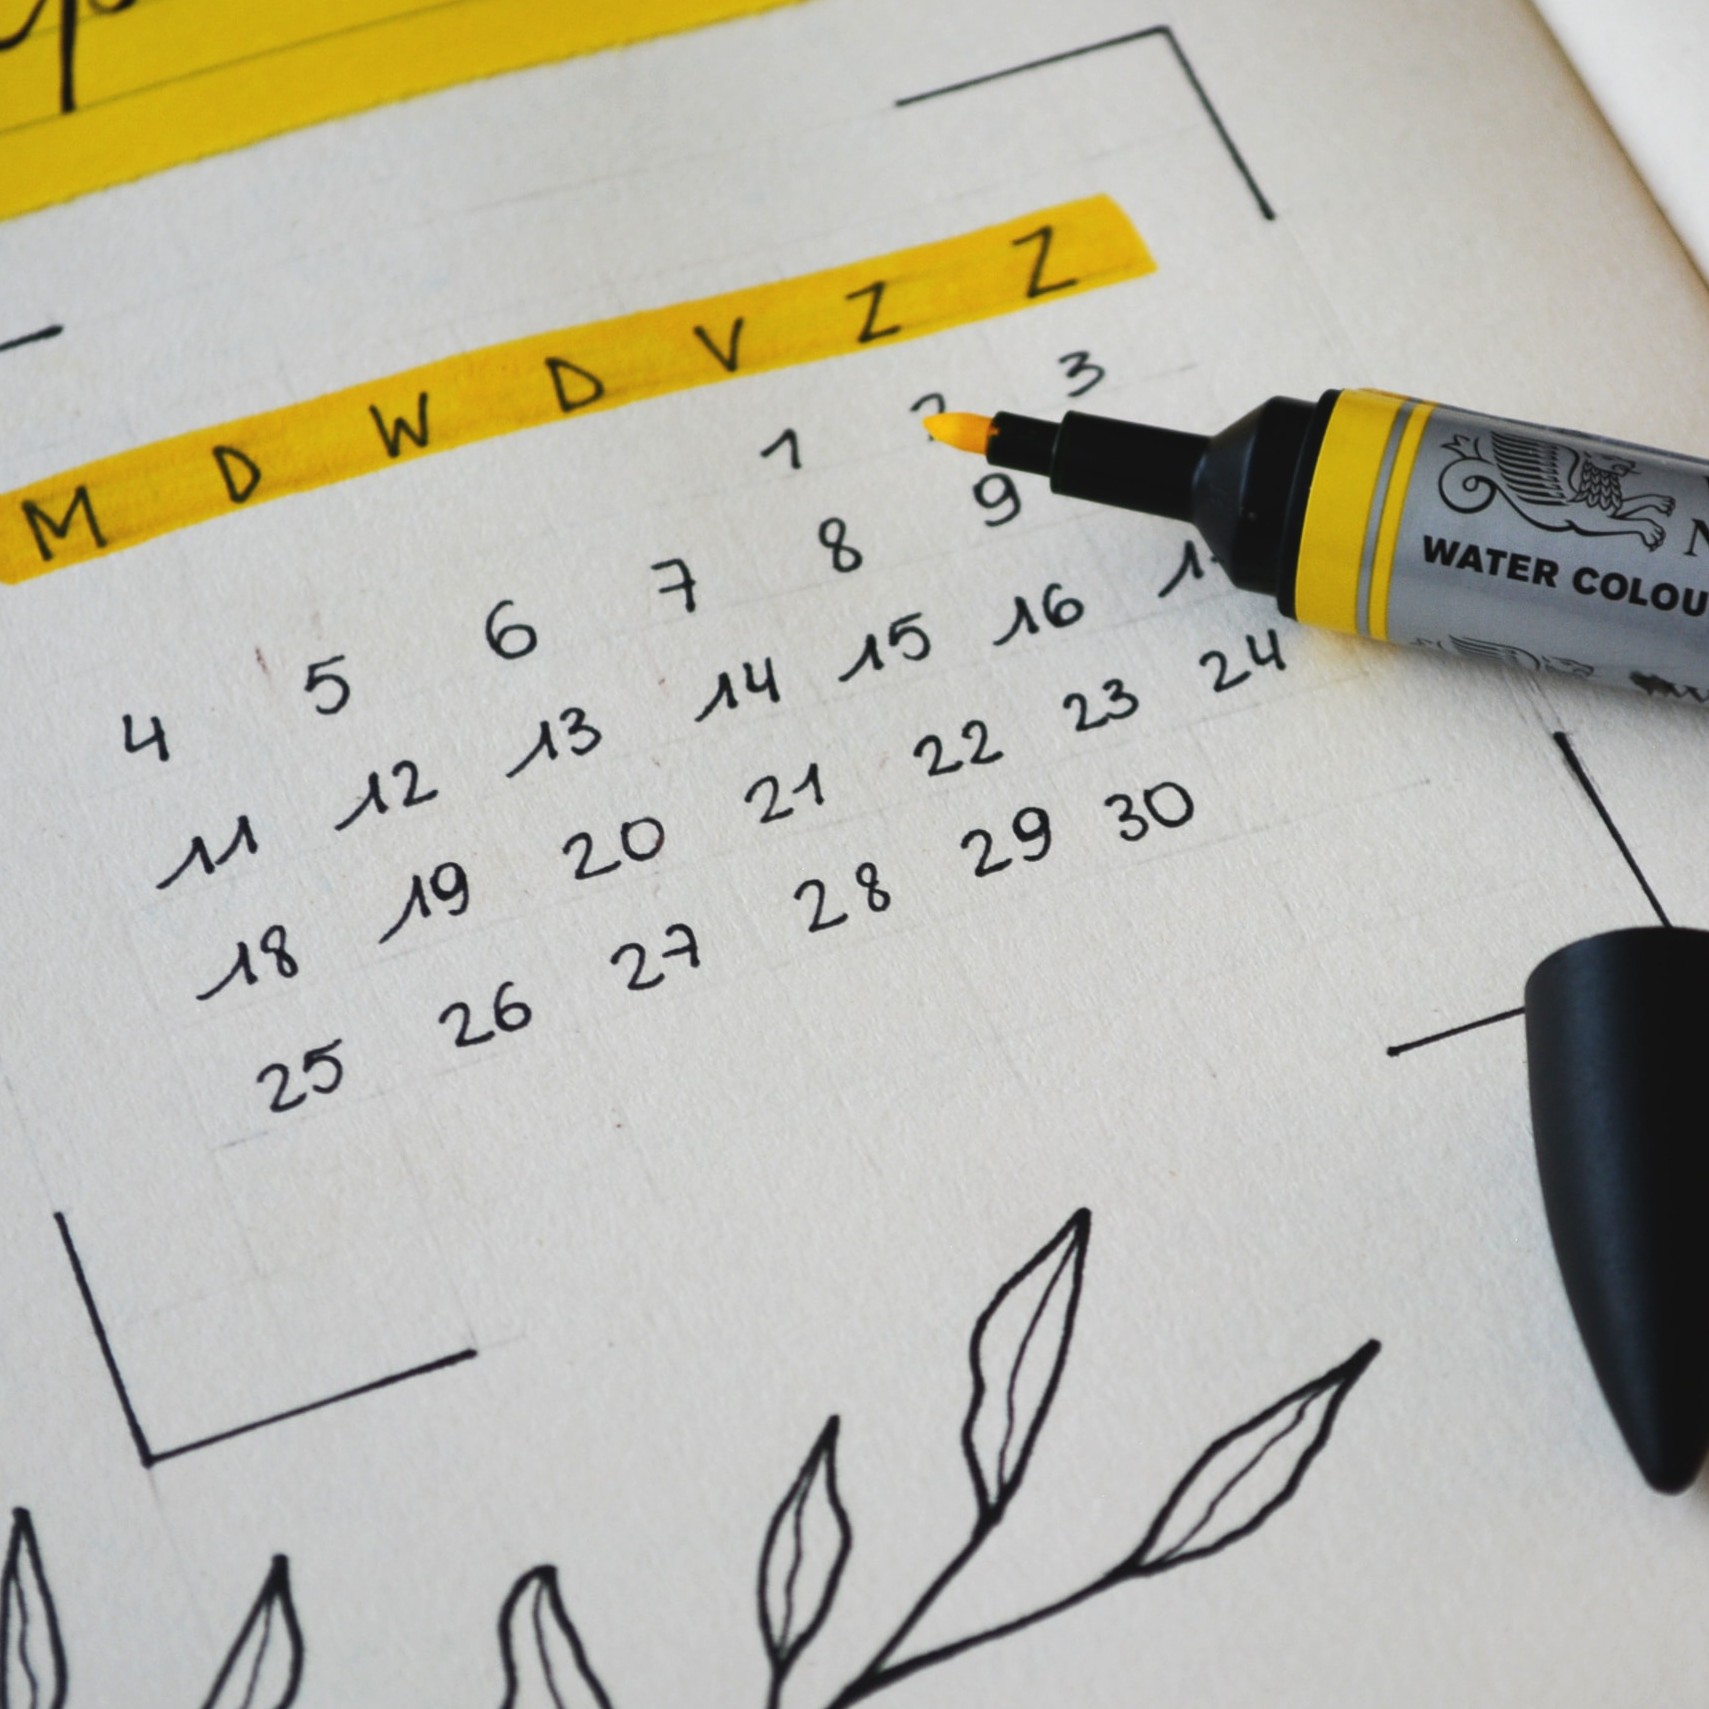 M D W D V Z Z
1 2 3
4 5 6 7 8 9
11 12 13 14 15 16
18 19 20 21 22 23 24
25 26 27 28 29 30
WATER COLOU